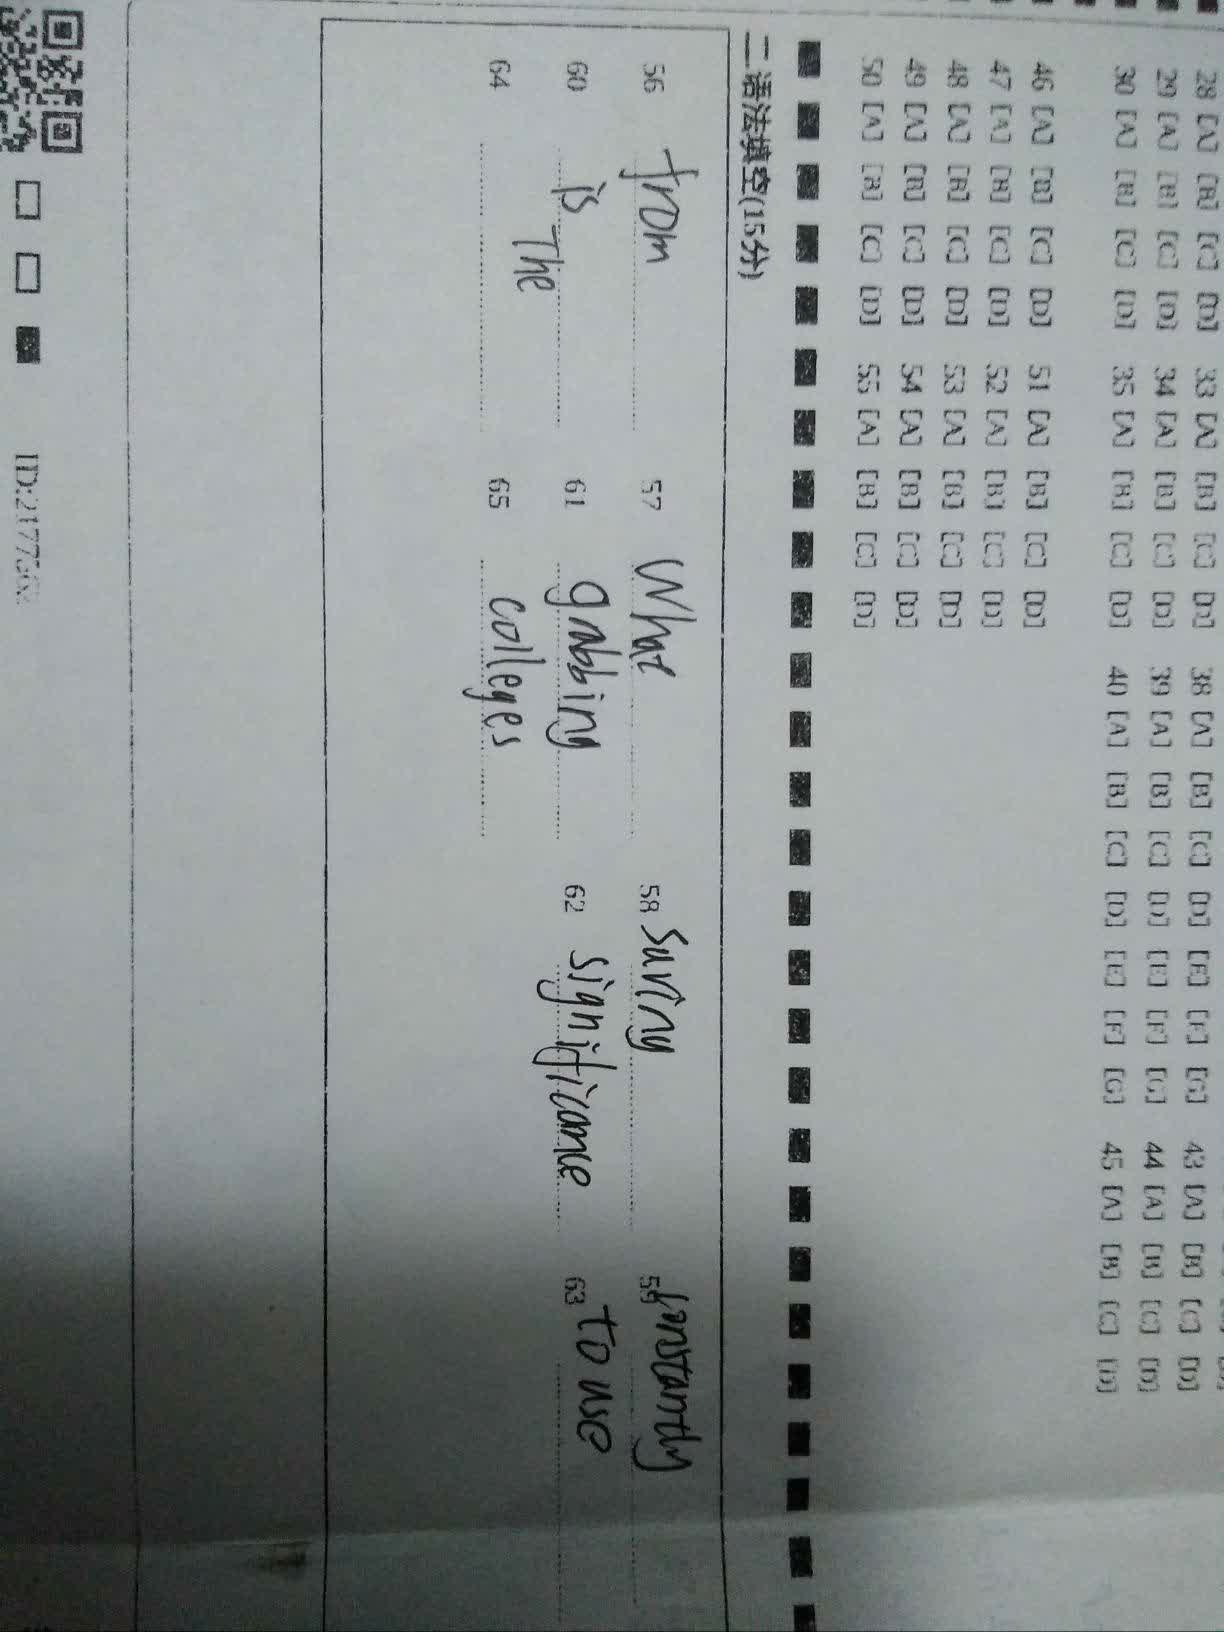 28 [A] [B] [C] [D] 33 [A] [B] [C] [D] 38 [A] [B] [C] [D] [E] [F] [G] 43 [A] [B] [C] [D]
29 [A] [B] [C] [D] 34 [A] [B] [C] [D] 39 [A] [B] [C] [D] [E] [F] [G] 44 [A] [B] [C] [D]
30 [A] [B] [C] [D] 35 [A] [B] [C] [D] 40 [A] [B] [C] [D] [E] [F] [G] 45 [A] [B] [C] [D]
46 [A] [B] [C] [D] 51 [A] [B] [C] [D]
47 [A] [B] [C] [D] 52 [A] [B] [C] [D]
48 [A] [B] [C] [D] 53 [A] [B] [C] [D]
49 [A] [B] [C] [D] 54 [A] [B] [C] [D]
50 [A] [B] [C] [D] 55 [A] [B] [C] [D]
二 语法填空(15分)
56 from 57 What 58 Saving 59 constantly
60 is 61 grabbing 62 significance 63 to use
64 The 65 colleges